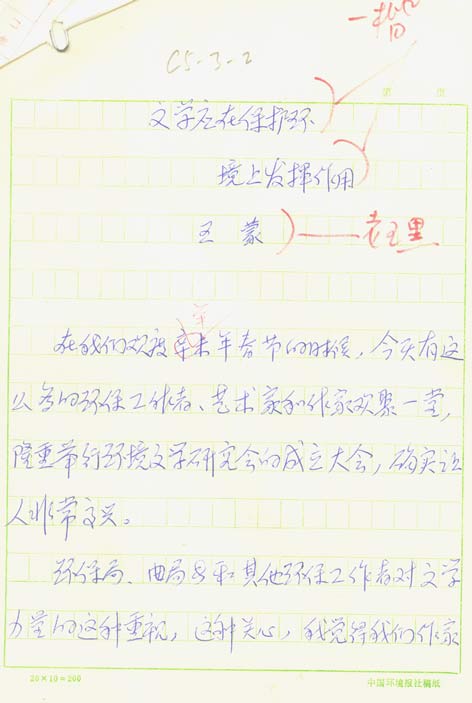 C5-3-2
第 页
文学应在保护环
境上发挥作用
王 蒙
老五黑
在我们欢度辛未年春节的时候，今天有这
么多的环保工作者、艺术家和作家欢聚一堂，
隆重举行环境文学研究会的成立大会，确实让
人非常高兴。
环保局、曲局长和其他环保工作者对文学
力量的这种重视，这种关心，我觉得我们作家
20×10=200
中国环境报社稿纸